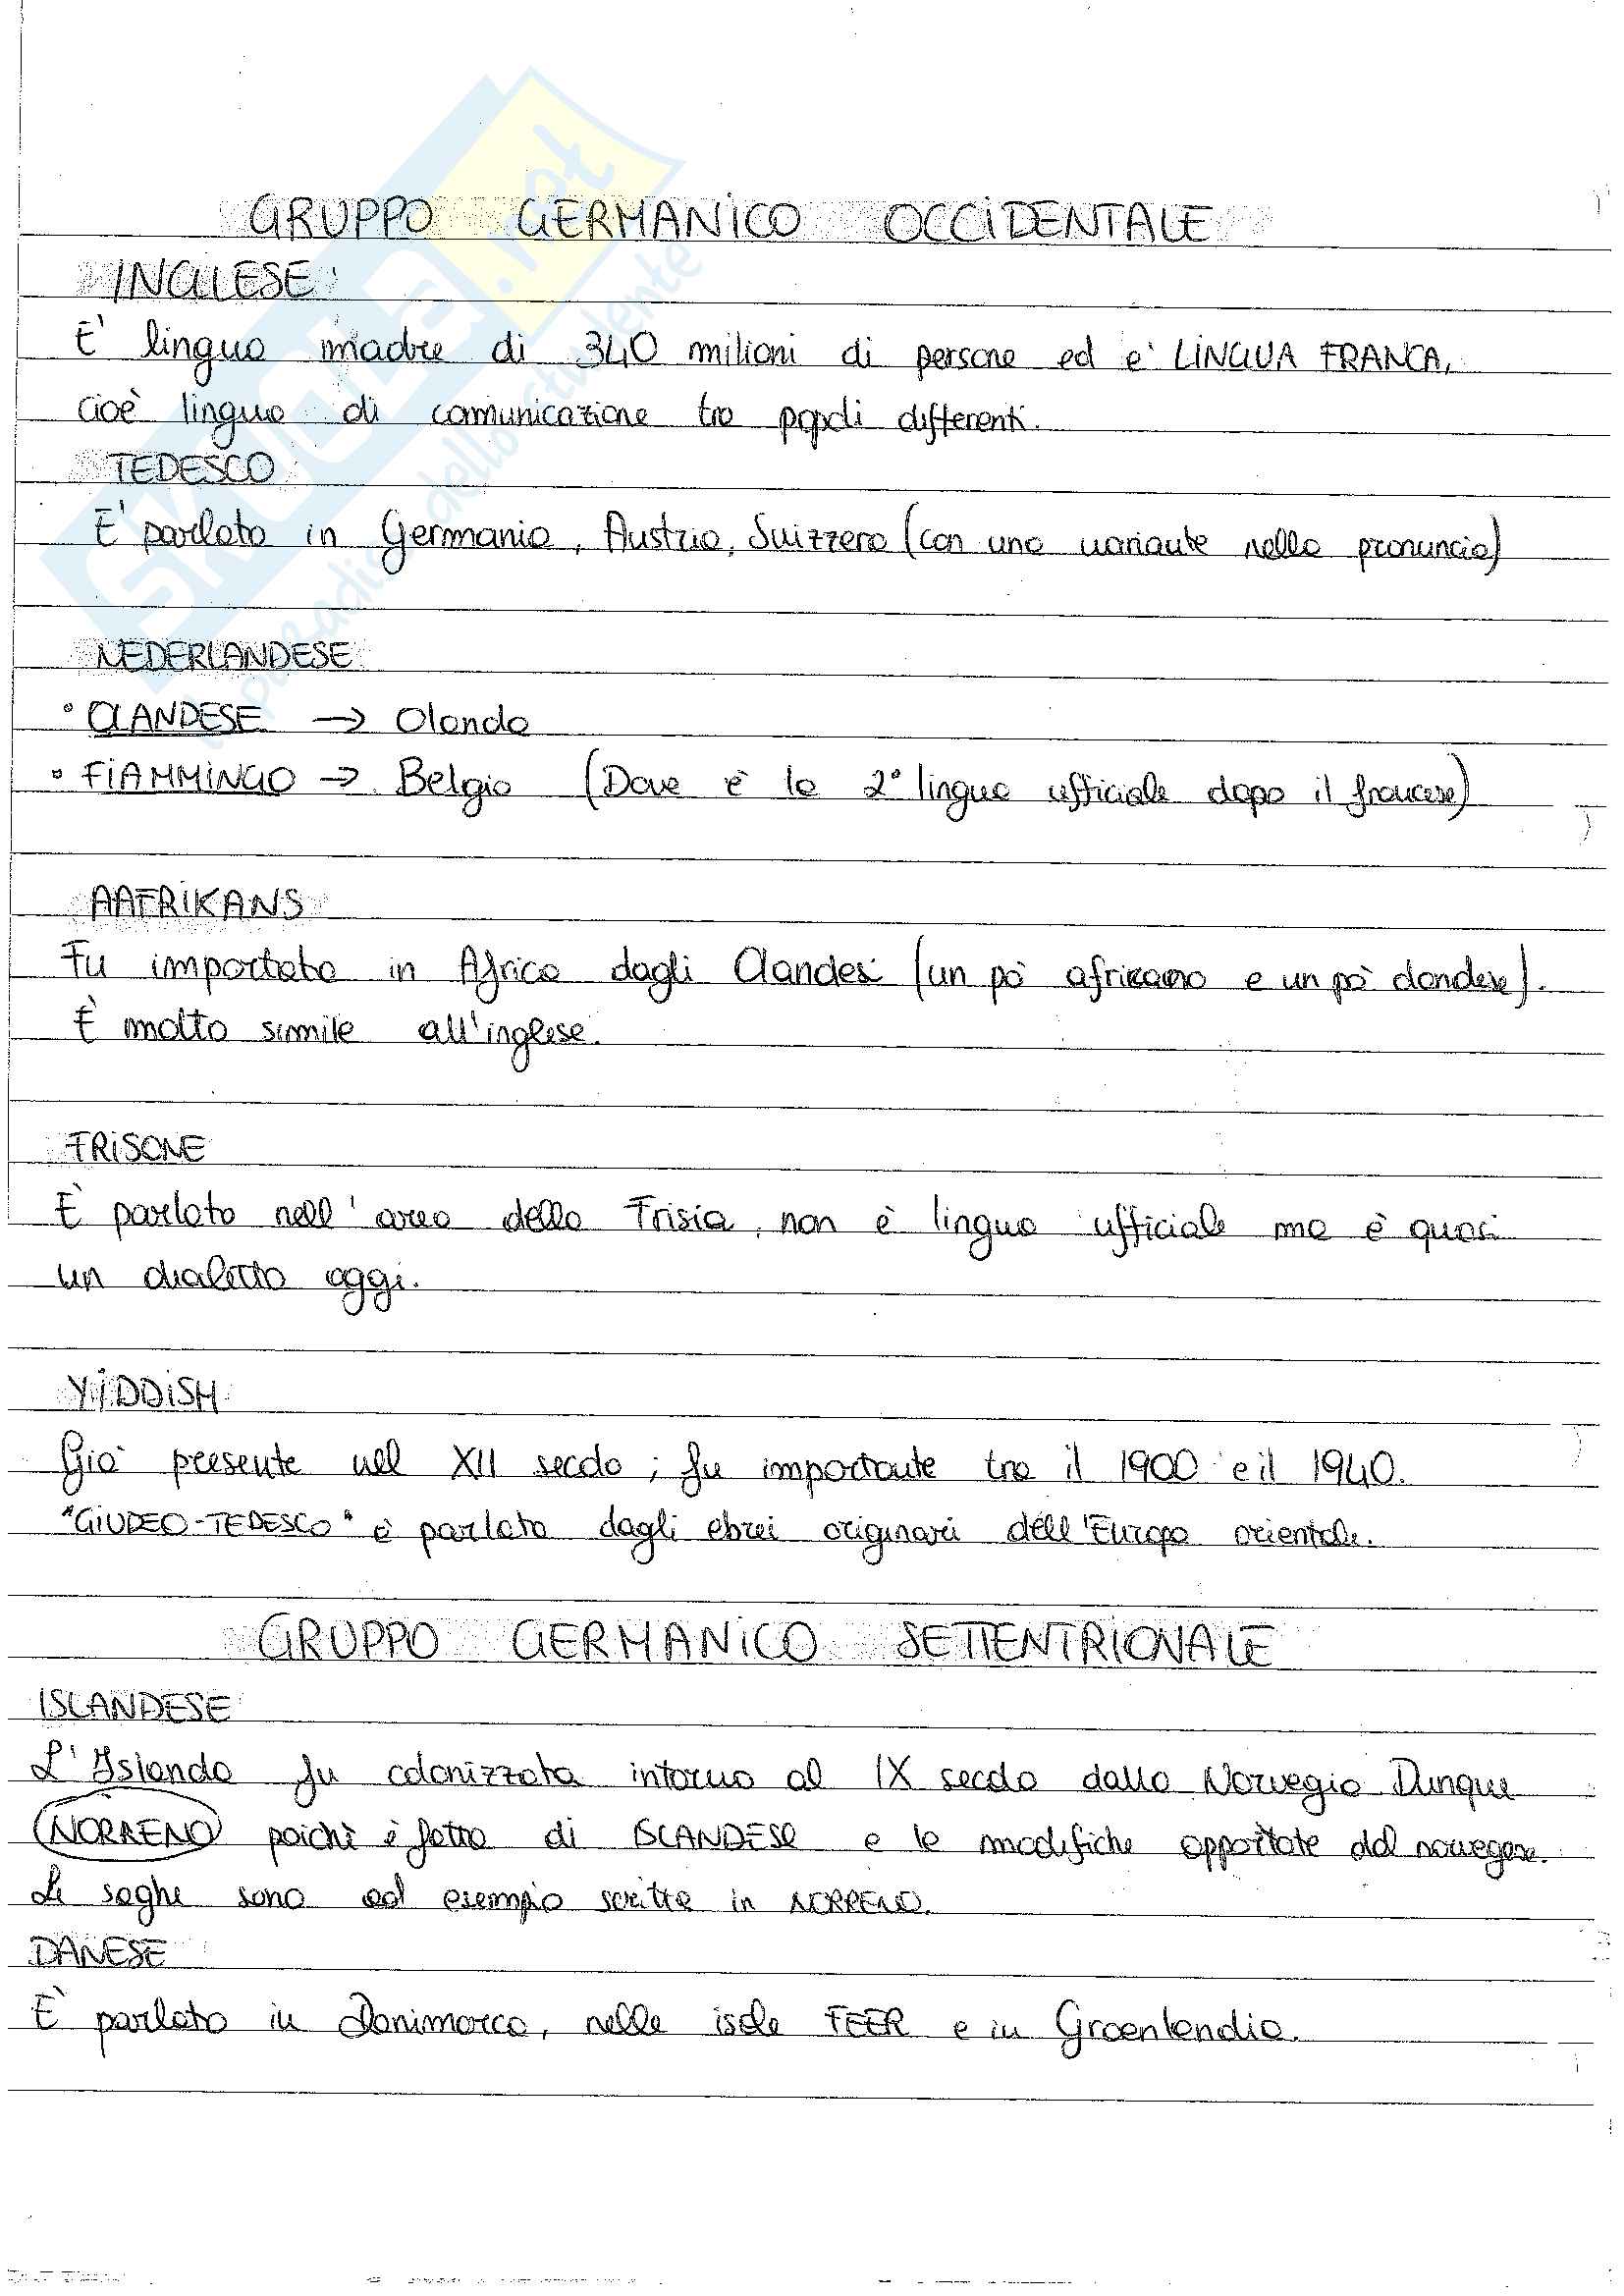 GRUPPO GERMANICO OCCIDENTALE
INGLESE
E' lingua madre di 340 milioni di persone ed e' LINGUA FRANCA,
cioè lingua di comunicazione tra popoli differenti.
TEDESCO
E' parlato in Germania, Austria, Svizzera (con una variante nella pronuncia)
NEDERLANDESE
° OLANDESE → Olanda
° FIAMMINGO → Belgio (Dove è la 2° lingua ufficiale dopo il francese)
AAFRIKANS
Fu importato in Africa dagli Olandesi (un pò africano e un pò olandese).
È molto simile all'inglese.
FRISONE
È parlato nell'area della Frisia, non è lingua ufficiale ma è quasi
un dialetto oggi.
YIDDISH
Già presente nel XII secolo; fu importante tra il 1900 e il 1940.
"GIUDEO-TEDESCO" è parlato dagli ebrei originari dell'Europa orientale.
GRUPPO GERMANICO SETTENTRIONALE
ISLANDESE
L'Islanda fu colonizzata intorno al IX secolo dalla Norvegia. Dunque
NORRENO poichè è fatto di ISLANDESE e le modifiche apportate dal norvegese.
Le saghe sono ad esempio scritte in NORRENO.
DANESE
E' parlato in Danimarca, nelle isole FEER e in Groenlandia.
SKUOLA.net